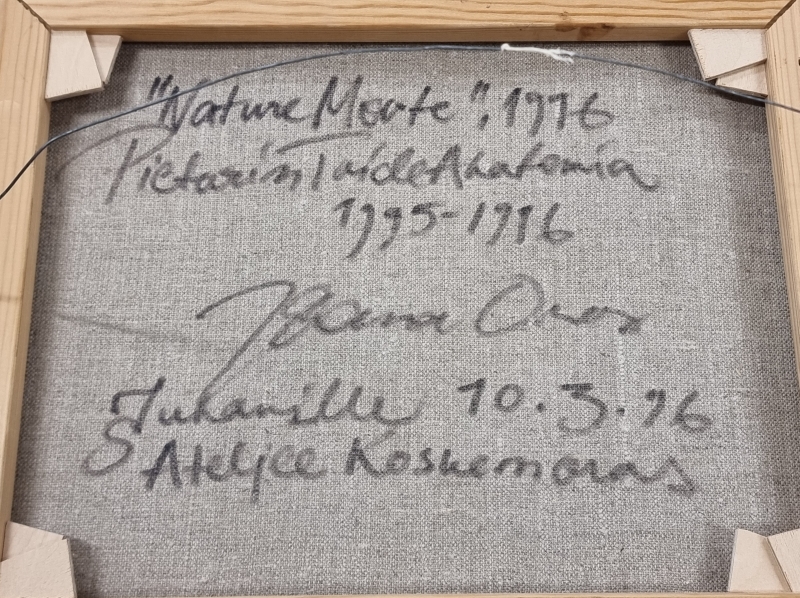 "Nature Morte", 1996
Pietarin Taideakatemia
1995-1996
Juhanille 10.3.96
Ateljee Koskenoras